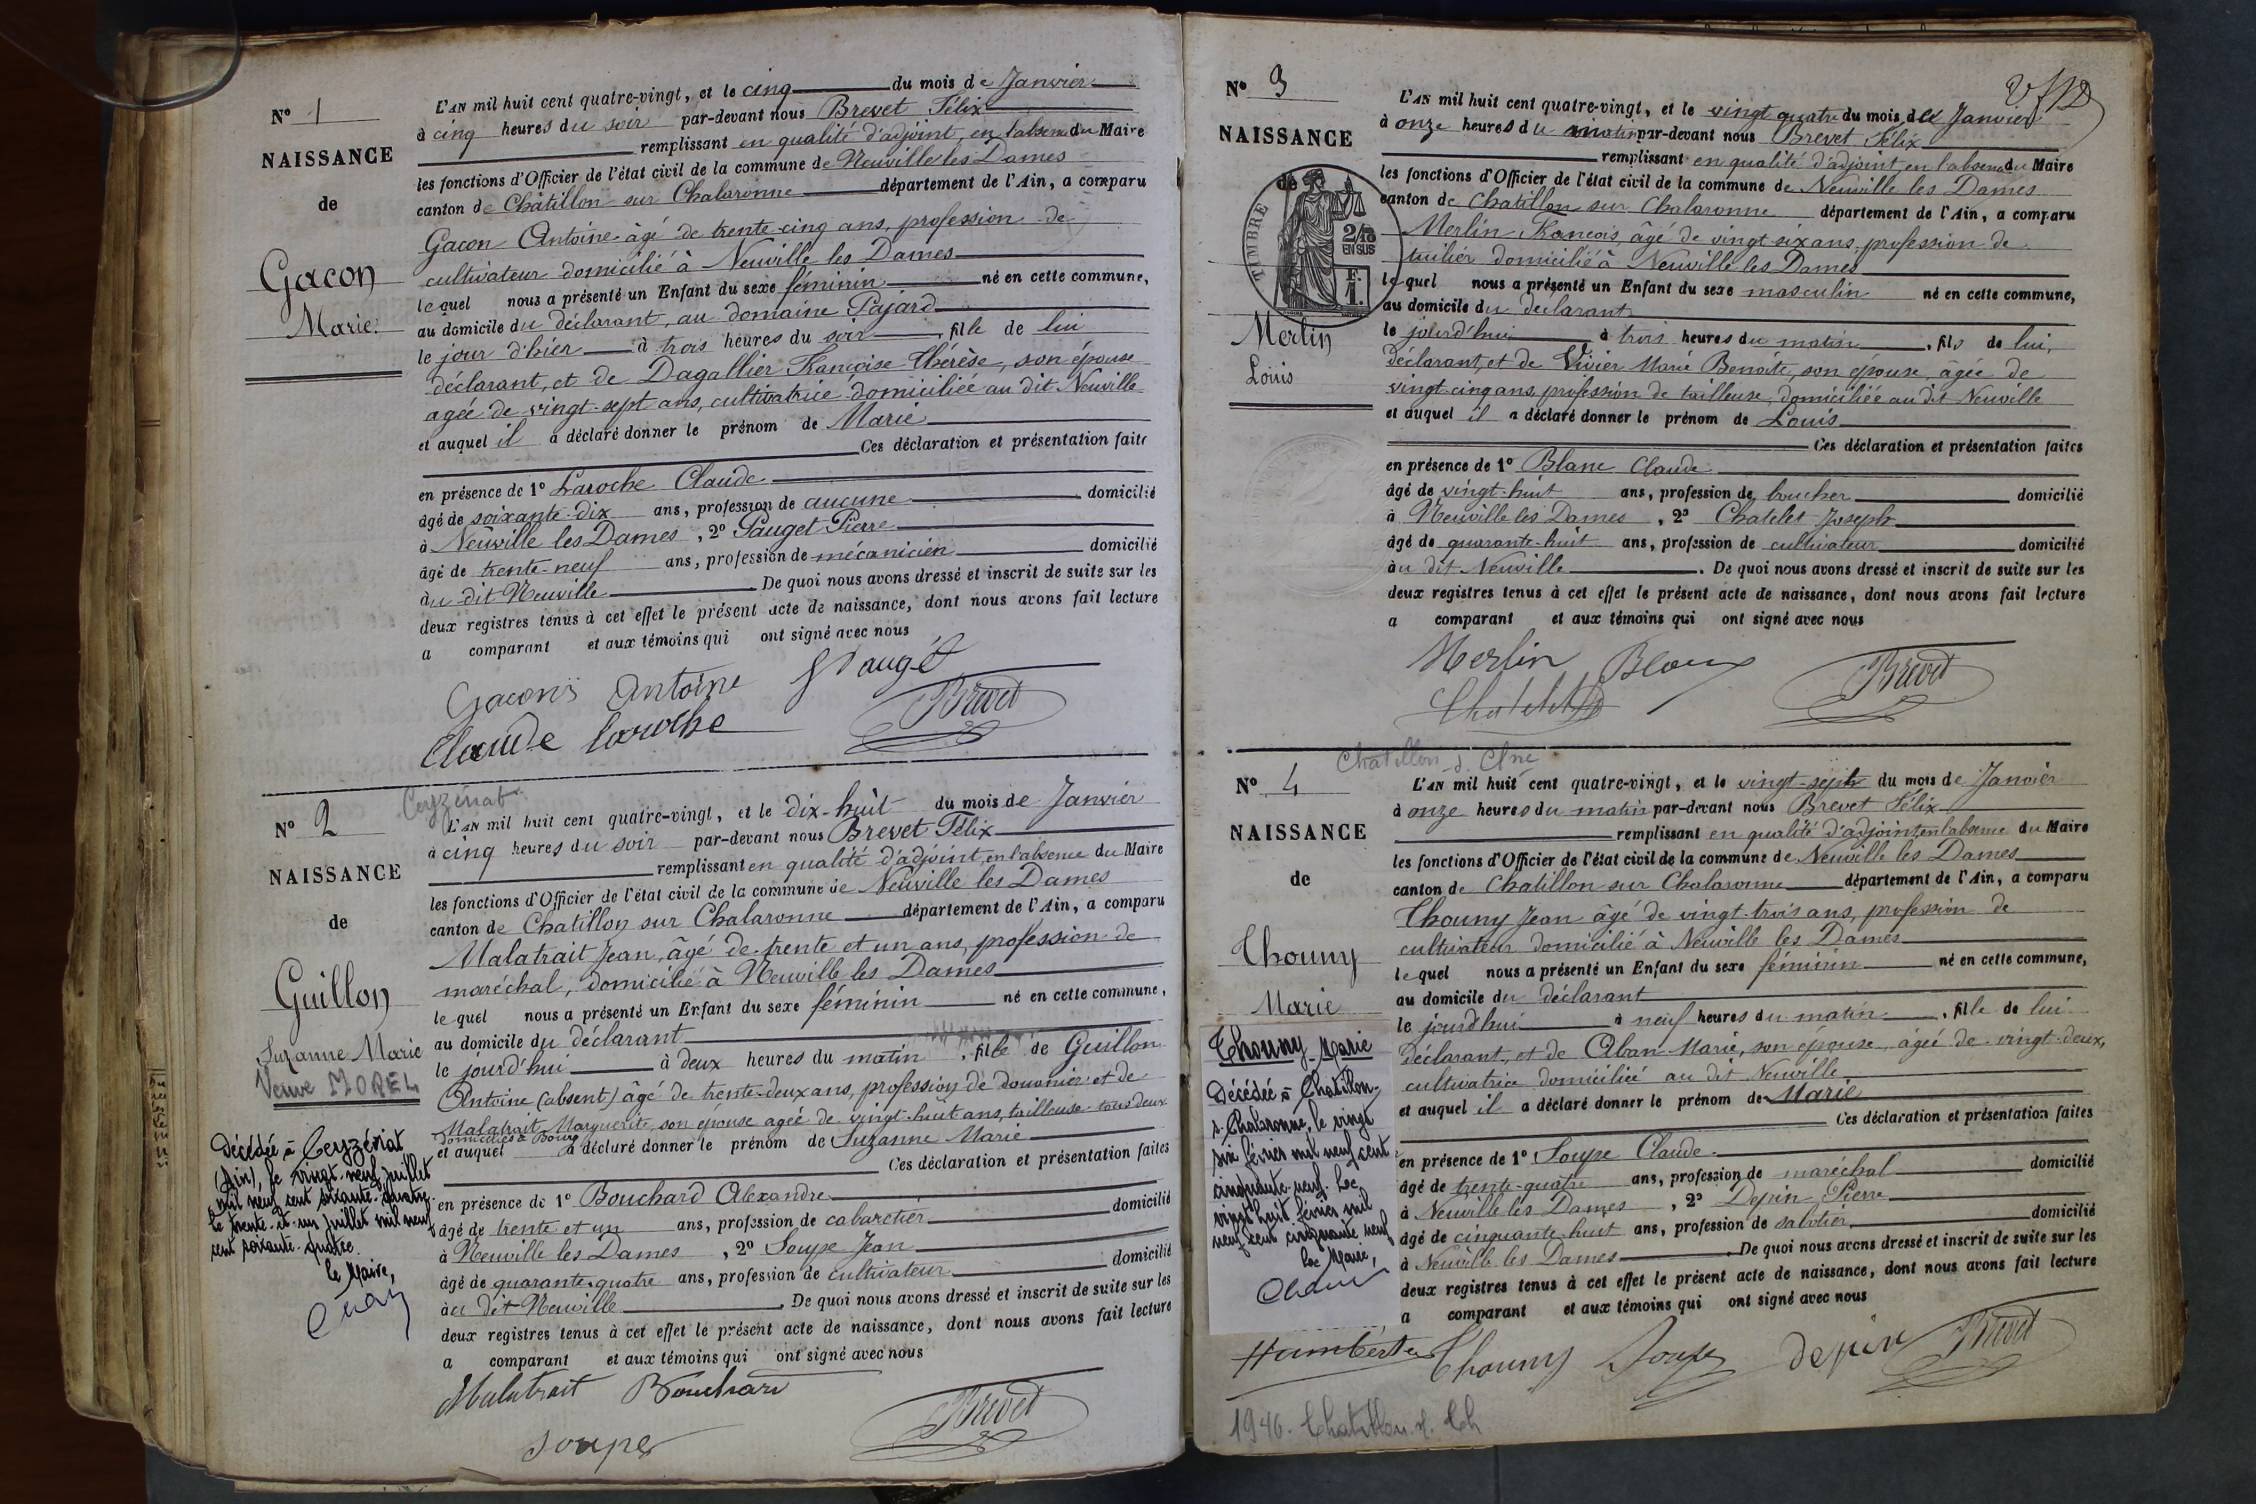 N° 1
NAISSANCE
de
Gacon
Marie
L'AN mil huit cent quatre-vingt, et le cinq du mois de Janvier
à cinq heures du soir par-devant nous Brevet Félix
remplissant en qualité d'adjoint, en l'absence du Maire
les fonctions d'Officier de l'état civil de la commune de Neuville les Dames
canton de Châtillon sur Chalaronne département de l'Ain, a comparu
Gacon Antoine âgé de trente-cinq ans, profession de
cultivateur domicilié à Neuville les Dames
lequel nous a présenté un Enfant du sexe féminin né en cette commune,
au domicile du déclarant, au domaine Pajard
le jour d'hier à trois heures du soir, fille de lui
déclarant, et de Dagallier Françoise Thérèse, son épouse
agée de vingt-sept ans, cultivatrice domiciliée au dit Neuville
et auquel il a déclaré donner le prénom de Marie
Ces déclaration et présentation faites
en présence de 1° Laroche Claude
âgé de soixante-dix ans, profession de aucune domicilié
à Neuville les Dames, 2° Pauget Pierre
âgé de trente-neuf ans, profession de mécanicien domicilié
au dit Neuville De quoi nous avons dressé et inscrit de suite sur les
deux registres tenus à cet effet le présent acte de naissance, dont nous avons fait lecture
a comparant et aux témoins qui ont signé avec nous
Gacon Antoine Paugé
Claude Laroche Brevet
Ceyzériat
N° 2
NAISSANCE
de
Guillon
Suzanne Marie
Veuve MOREL
Décédée à Ceyzériat
(Ain), le vingt-neuf juillet
mil neuf cent soixante-quatre.
le trente-et-un juillet mil neuf
cent soixante-quatre.
le Maire,
L'AN mil huit cent quatre-vingt, et le dix-huit du mois de Janvier
à cinq heures du soir par-devant nous Brevet Félix
remplissant en qualité d'adjoint, en l'absence du Maire
les fonctions d'Officier de l'état civil de la commune de Neuville les Dames
canton de Chatillon sur Chalaronne département de l'Ain, a comparu
Malatrait Jean, âgé de trente et un ans, profession de
maréchal, domicilié à Neuville les Dames
lequel nous a présenté un Enfant du sexe féminin né en cette commune,
au domicile du déclarant
le jourd'hui à deux heures du matin, fille de Guillon
Antoine (absent) âgé de trente-deux ans, profession de douanier et de
Malatrait Marguerite, son épouse agée de vingt-huit ans, tailleuse tous deux
domiciliés à Bourg
et auquel a déclaré donner le prénom de Suzanne Marie
Ces déclaration et présentation faites
en présence de 1° Bouchard Alexandre
âgé de trente et un ans, profession de cabaretier domicilié
à Neuville les Dames, 2° Soupe Jean
âgé de quarante-quatre ans, profession de cultivateur domicilié
au dit Neuville. De quoi nous avons dressé et inscrit de suite sur les
deux registres tenus à cet effet le présent acte de naissance, dont nous avons fait lecture
a comparant et aux témoins qui ont signé avec nous
Malatrait Bouchard
Brevet
Soupe
N° 3
NAISSANCE
de
TIMBRE
2/10
EN SUS
Merlin
Louis
L'AN mil huit cent quatre-vingt, et le vingt quatre du mois de Janvier
à onze heures du matin par-devant nous Brevet Félix
remplissant en qualité d'adjoint, en l'absence du Maire
les fonctions d'Officier de l'état civil de la commune de Neuville les Dames
canton de Chatillon sur Chalaronne département de l'Ain, a comparu
Merlin François, âgé de vingt-six ans, profession de
tuilier domicilié à Neuville les Dames
lequel nous a présenté un Enfant du sexe masculin né en cette commune,
au domicile du déclarant
le jourd'hui à trois heures du matin, fils de lui,
déclarant, et de Vivier Marie Benoite, son épouse, âgée de
vingt-cinq ans, profession de tailleuse, domiciliée au dit Neuville
et auquel il a déclaré donner le prénom de Louis
Ces déclaration et présentation faites
en présence de 1° Blanc Claude
âgé de vingt-huit ans, profession de boucher domicilié
à Neuville les Dames, 2° Chatelet Joseph
âgé de quarante-huit ans, profession de cultivateur domicilié
au dit Neuville. De quoi nous avons dressé et inscrit de suite sur les
deux registres tenus à cet effet le présent acte de naissance, dont nous avons fait lecture
a comparant et aux témoins qui ont signé avec nous
Merlin Blanc Brevet
Chatelet
Chatillon s. Chne
N° 4
NAISSANCE
de
Thouny
Marie
Thouny Marie
Décédée à Chatillon-
s-Chalaronne, le vingt
six février mil neuf cent
cinquante-neuf. Le
vingt huit février mil
neuf cent cinquante neuf
Le Maire,
L'AN mil huit cent quatre-vingt, et le vingt-sept du mois de Janvier
à onze heures du matin par-devant nous Brevet Félix
remplissant en qualité d'adjoint, en l'absence du Maire
les fonctions d'Officier de l'état civil de la commune de Neuville les Dames
canton de Chatillon sur Chalaronne département de l'Ain, a comparu
Thouny Jean âgé de vingt-trois ans, profession de
cultivateur domicilié à Neuville les Dames
lequel nous a présenté un Enfant du sexe féminin né en cette commune,
au domicile du déclarant
le jourd'hui à neuf heures du matin, fille de lui
déclarant, et de Aban Marie, son épouse, âgée de vingt-deux,
cultivatrice domiciliée au dit Neuville
et auquel il a déclaré donner le prénom de Marie
Ces déclaration et présentation faites
en présence de 1° Soupe Claude
âgé de trente-quatre ans, profession de maréchal domicilié
à Neuville les Dames, 2° Depin Pierre
âgé de cinquante-huit ans, profession de sabotier domicilié
à Neuville les Dames. De quoi nous avons dressé et inscrit de suite sur les
deux registres tenus à cet effet le présent acte de naissance, dont nous avons fait lecture
a comparant et aux témoins qui ont signé avec nous
Thouny Soupe Depin Brevet
1946. Chatillon s. Ch